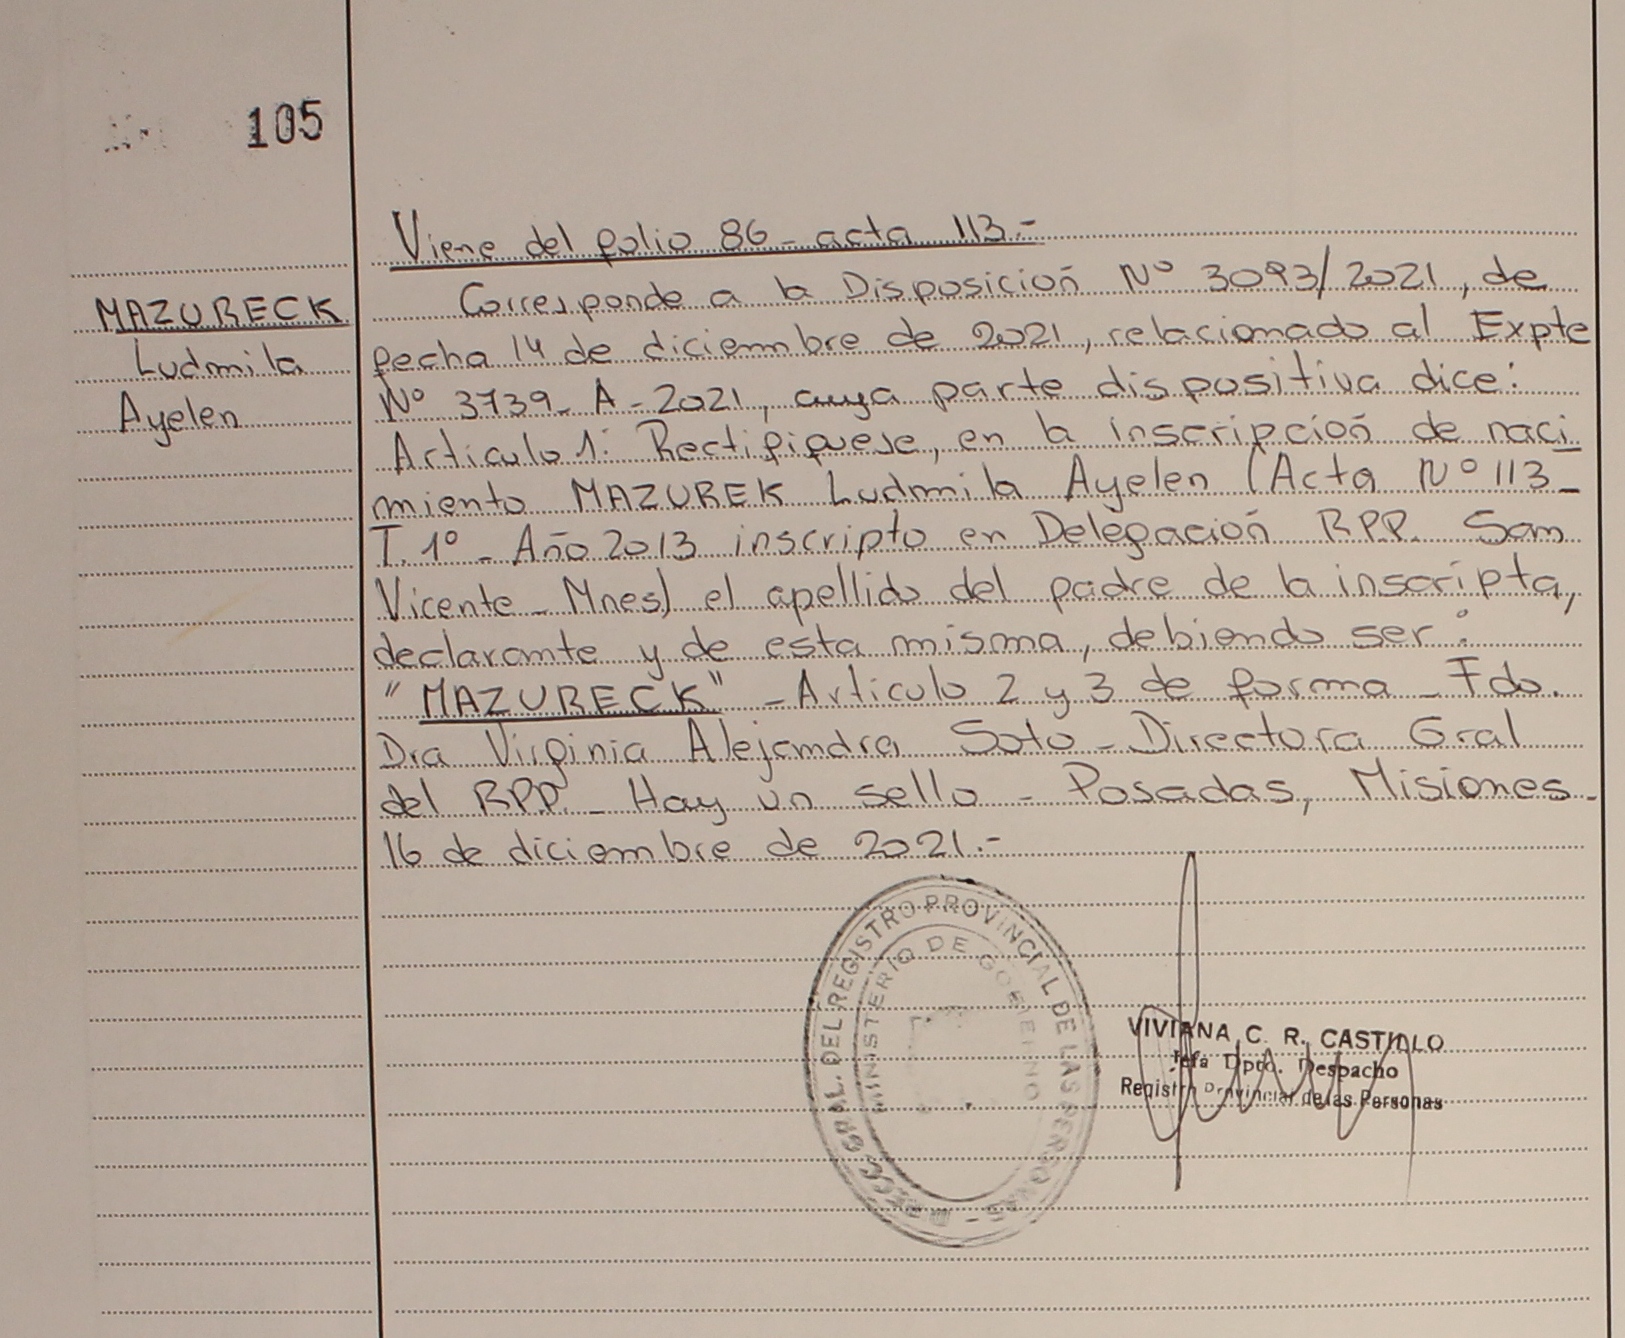 105
MAZURECK
Ludmila
Ayelen
Viene del folio 86 - acta 113.-
Corresponde a la Disposición Nº 3093/2021, de
fecha 14 de diciembre de 2021, relacionado al Expte
Nº 3739 - A - 2021, cuya parte dispositiva dice:
Articulo 1: Rectifiquese, en la inscripción de naci
miento MAZUREK Ludmila Ayelen (Acta Nº 113 -
T. 1º - Año 2013 inscripto en Delegación RPP. San
Vicente - Mnes) el apellido del padre de la inscripta,
declarante y de esta misma, debiendo ser:
"MAZURECK" - Articulo 2 y 3 de forma - Fdo.
Dra Virginia Alejandra Soto - Directora Gral
del RPP. - Hay un sello - Posadas, Misiones -
16 de diciembre de 2021.-
GRAL. DEL REGISTRO PROVINCIAL DE LAS PERSONAS -
MINISTERIO DE GOBIERNO
VIVIANA C. R. CASTILLO
Jefa Dpto. Despacho
Registro Provincial de las Personas